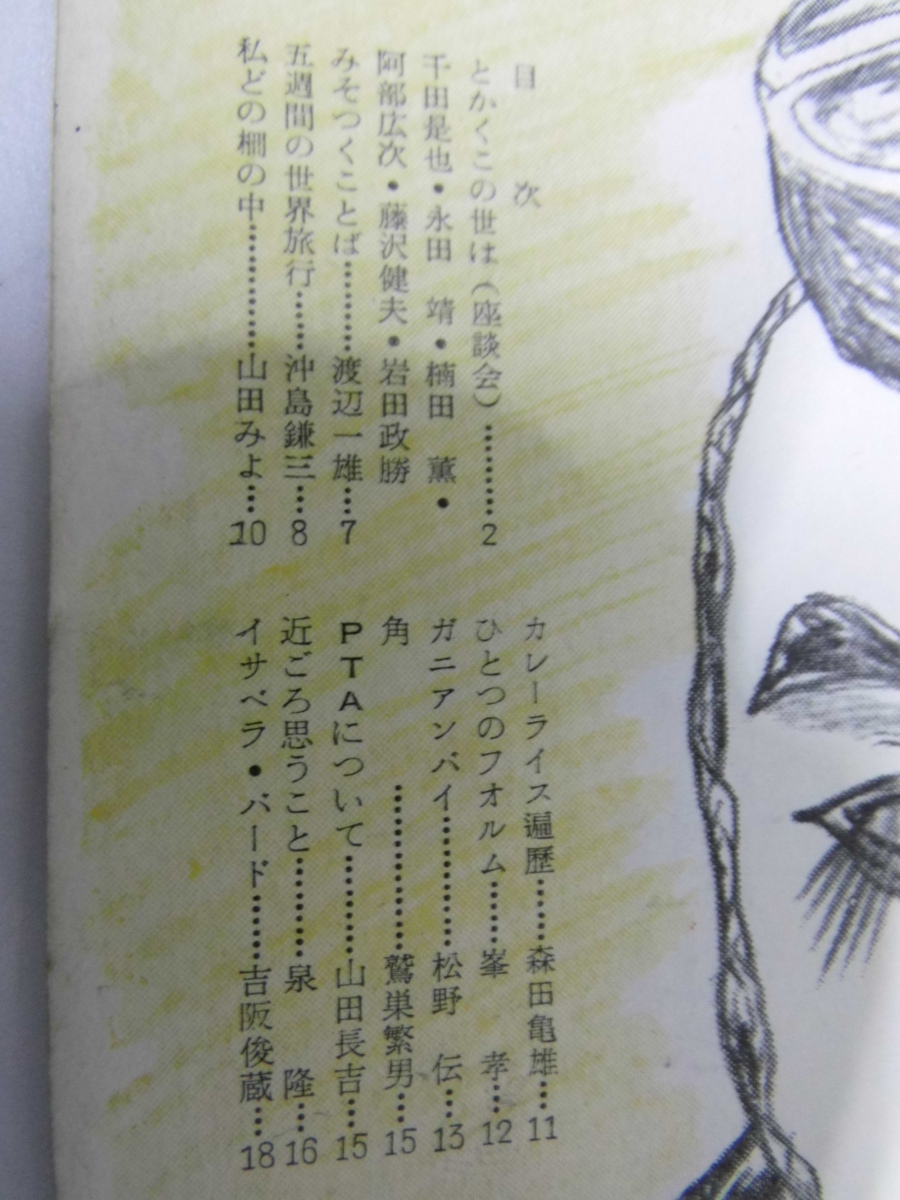 目次
とかくこの世は（座談会）…………2
千田是也・永田　靖・楠田　薫・
阿部広次・藤沢健夫・岩田政勝
みそつくことば…………渡辺一雄…7
五週間の世界旅行……沖島鎌三…8
私どの柵の中……………山田みよ…10
カレーライス遍歴……森田亀雄…11
ひとつのフオルム……峯　孝…12
ガニアンバイ……………松野　伝…13
角　………………鷲巣繁男…15
PTAについて…………山田長吉…15
近ごろ思うこと…………泉　隆…16
イサベラ・バード……吉阪俊蔵…18